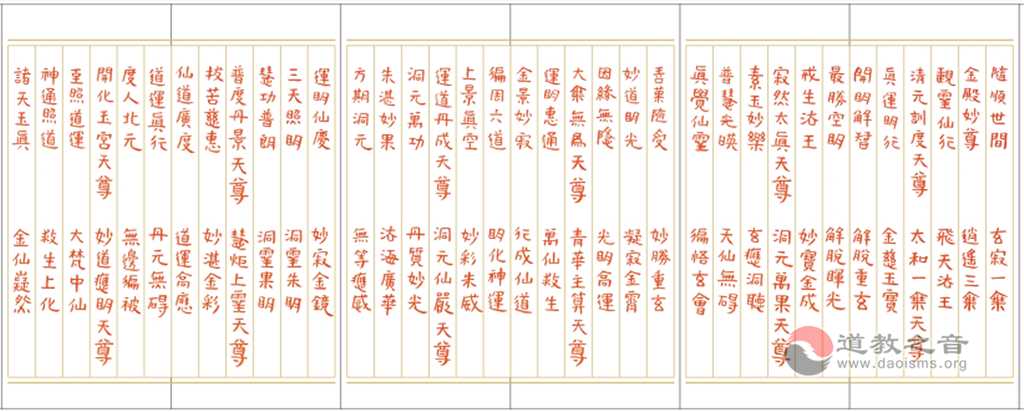 隨順世間 玄寂一乘
金殿妙尊 逍遙三乘
覩靈仙行 飛天法王
清元訓度天尊 太和一乘天尊
眞運明行 金慧玉寶
開明解君 解脫重玄
最勝空明 解脫暉光
戒生法王 妙寶金成
寂然太眞天尊 洞元萬果天尊
素玉妙樂 玄應洞聽
普慧光暎 天仙無碍
眞覺仙靈 徧悟玄會
善菓隨受 妙勝重玄
妙道明光 凝寂金霄
因緣無隱 光明高運
大乘無為天尊 青華主算天尊
運明惠通 萬仙救生
金景妙寂 行成仙道
徧周六道 明化神運
上景眞空 妙彩朱威
運道丹成天尊 洞元仙嚴天尊
洞元萬功 丹質妙光
朱湛妙果 法海廣華
方期洞元 無等應感
運明仙慶 妙寂金鏡
三天照明 洞靈朱明
慧功普朗 洞靈果明
普度丹景天尊 慧炬上靈天尊
拔苦慧惠 妙湛金彩
仙道廣度 道運高應
道運眞行 丹元無碍
度人北元 無邊徧被
開化玉宮天尊 妙道應明天尊
至照道運 大梵中仙
神通照道 救生上化
諸天玉眞 金仙嶷然
道教之音
www.daoisms.org